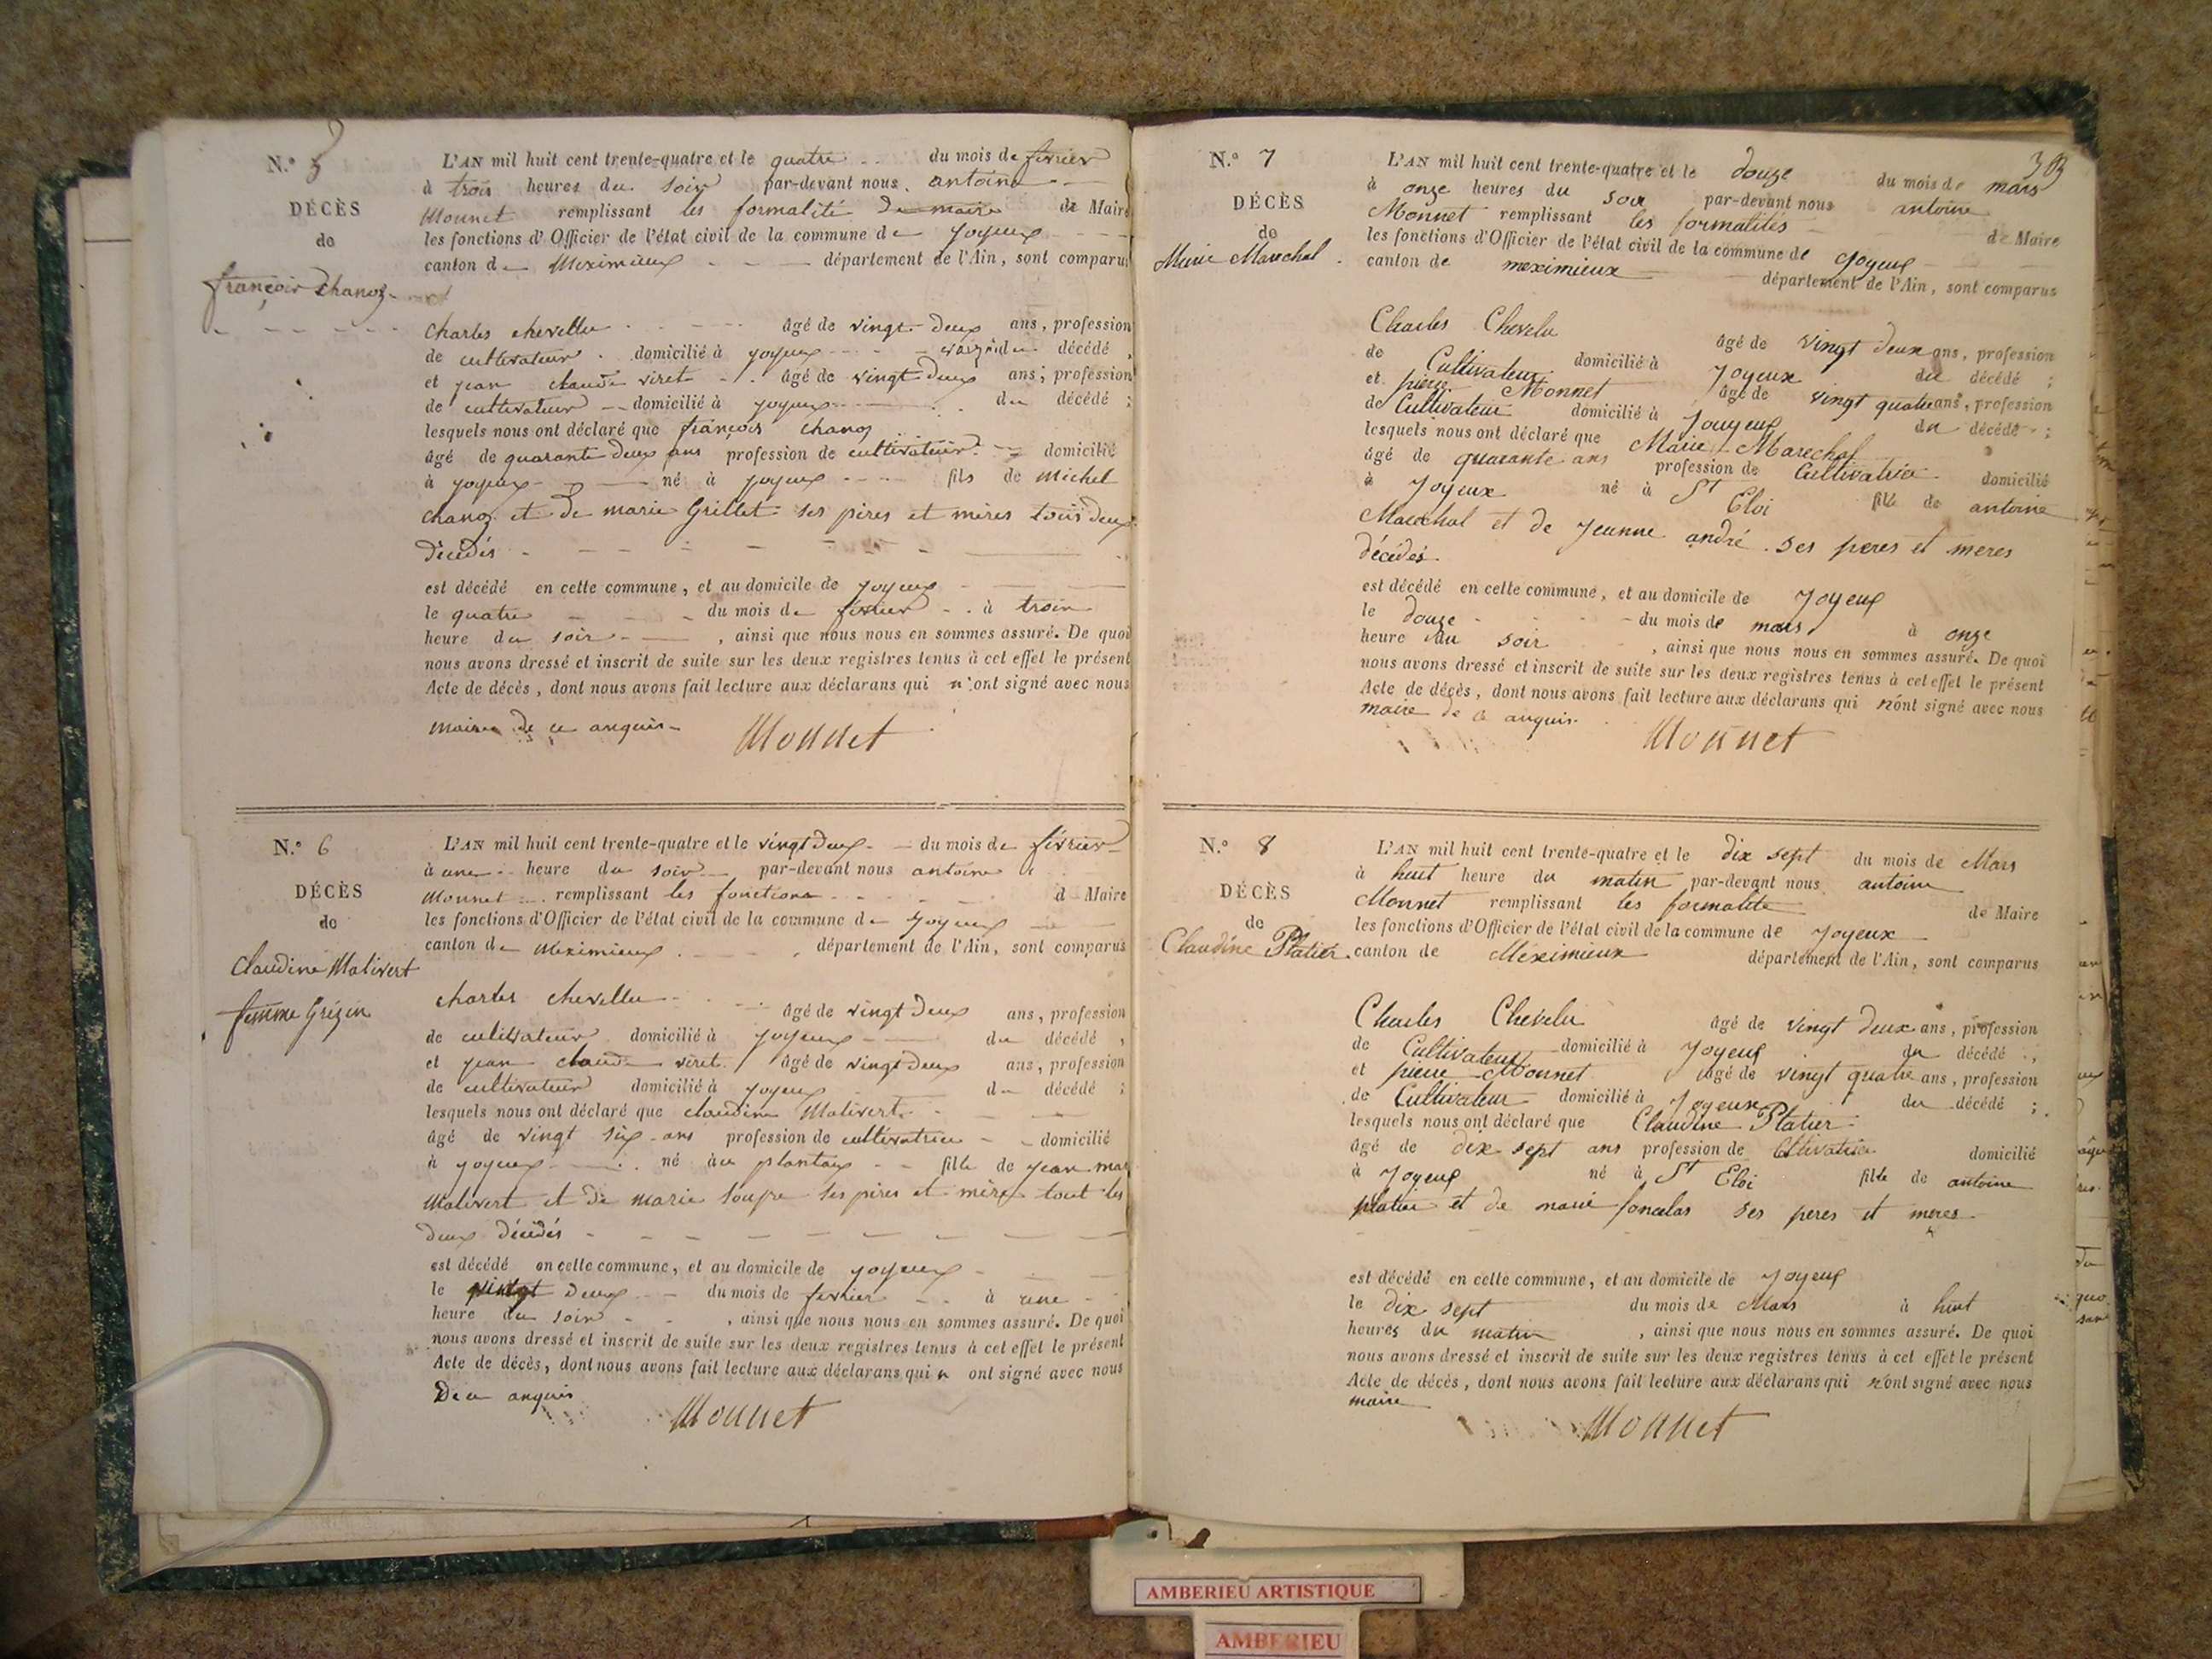 N.° 5
DÉCÈS
de
françois Chanoz
L'AN mil huit cent trente-quatre et le quatre du mois de février
à trois heures du soir par-devant nous antoine
Monnet remplissant les formalité de maire de Maire
les fonctions d'Officier de l'état civil de la commune de joyeux
canton de Meximieux département de l'Ain, sont comparus
Charles chevellu âgé de vingt-deux ans, profession
de cultivateur domicilié à joyeux du décédé,
et jean claude viret âgé de vingt deux ans, profession
de cultivateur domicilié à joyeux du décédé;
lesquels nous ont déclaré que françois Chanoz
âgé de quarante deux ans profession de cultivateur domicilié
à joyeux né à joyeux fils de Michel
Chanoz et de marie Grillet ses pères et mères tous deux
décédés
est décédé en cette commune, et au domicile de joyeux
le quatre du mois de février à trois
heure du soir, ainsi que nous nous en sommes assuré. De quoi
nous avons dressé et inscrit de suite sur les deux registres tenus à cet effet le présent
Acte de décès, dont nous avons fait lecture aux déclarans qui n'ont signé avec nous
maire de ce anquis
Monnet
N.° 6
DÉCÈS
de
Claudine Malivert
femme Grégin
L'AN mil huit cent trente-quatre et le vingt deux du mois de février
à une heure du soir par-devant nous antoine
Monnet remplissant les fonctions d Maire
les fonctions d'Officier de l'état civil de la commune de joyeux
canton de Meximieux département de l'Ain, sont comparus
charles chevellu âgé de vingt deux ans, profession
de cultivateur domicilié à joyeux du décédé,
et jean claude viret âgé de vingt deux ans, profession
de cultivateur domicilié à joyeux du décédé;
lesquels nous ont déclaré que claudine Malivert
âgé de vingt six ans profession de cultivatrice domicilié
à joyeux né au plantay fille de jean mar
Malivert et de marie soupe ses pères et mère tout les
deux décédés
est décédé en cette commune, et au domicile de joyeux
le vingt deux du mois de fevrier à une
heure du soir, ainsi que nous nous en sommes assuré. De quoi
nous avons dressé et inscrit de suite sur les deux registres tenus à cet effet le présent
Acte de décès, dont nous avons fait lecture aux déclarans qui n ont signé avec nous
De ce anquis
Monnet
303
N.° 7
DÉCÈS
de
Marie Marechal
L'AN mil huit cent trente-quatre et le douze du mois de mars
à onze heures du soir par-devant nous antoine
Monnet remplissant les formalités de Maire
les fonctions d'Officier de l'état civil de la commune de joyeux
canton de meximieux département de l'Ain, sont comparus
Charles Chevelu âgé de vingt deux ans, profession
de Cultivateur domicilié à Joyeux du décédé;
et pierre Monnet âgé de vingt quatre ans, profession
de Cultivateur domicilié à Jouyeux du décédé;
lesquels nous ont déclaré que Marie Marechal
âgé de quarante ans profession de Cultivatrice domicilié
à Joyeux né à St Eloi fille de antoine
Marechal et de Jeanne andré ses peres et meres
décédés
est décédé en cette commune, et au domicile de Joyeux
le douze du mois de mars à onze
heure du soir, ainsi que nous nous en sommes assuré. De quoi
nous avons dressé et inscrit de suite sur les deux registres tenus à cet effet le présent
Acte de décès, dont nous avons fait lecture aux déclarans qui n'ont signé avec nous
maire de ce anquis.
Monnet
N.° 8
DÉCÈS
de
Claudine Platier
L'AN mil huit cent trente-quatre et le dix sept du mois de Mars
à huit heure du matin par-devant nous antoine
Monnet remplissant les formalité de Maire
les fonctions d'Officier de l'état civil de la commune de Joyeux
canton de Méximieux département de l'Ain, sont comparus
Charles Chevelu âgé de vingt deux ans, profession
de Cultivateur domicilié à Joyeux du décédé,
et pierre Monnet âgé de vingt quatre ans, profession
de Cultivateur domicilié à Joyeux du décédé;
lesquels nous ont déclaré que Claudine Platier
âgé de dix sept ans profession de Cltivatrice domicilié
à Joyeux né à St Eloi fille de antoine
platier et de marie ses peres et meres
est décédé en cette commune, et au domicile de Joyeux
le dix sept du mois de Mars à huit
heures du matin, ainsi que nous nous en sommes assuré. De quoi
nous avons dressé et inscrit de suite sur les deux registres tenus à cet effet le présent
Acte de décès, dont nous avons fait lecture aux déclarans qui n'ont signé avec nous
maire
Monnet
AMBERIEU ARTISTIQUE
AMBERIEU